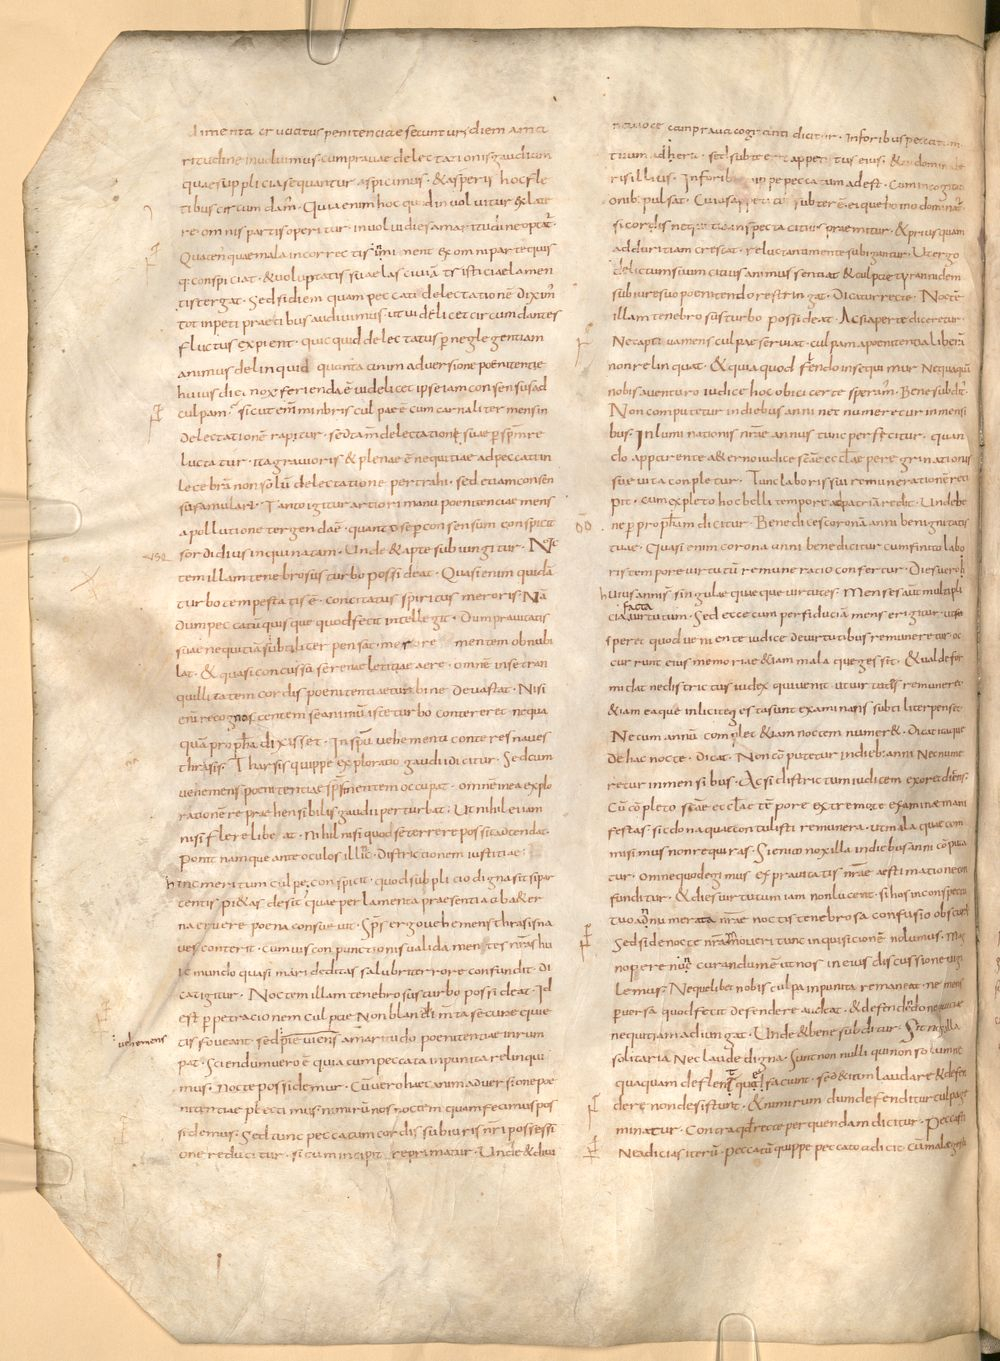 limenta cruciatus penitenciae secuntur diem ama
ritudine involvimus cum pravae delectationis gaudium
quae supplicia sequantur aspicimus · & asperis hoc fle
tibus circumdam̄ · Quia enim hoc quod involvitur ex late
re omnis partis operitur · involui diem amaritudine optat̄ ·
Quaten̄ quae mala incorrectis imminent ex omni parte quis
q· conspiciat · & voluptatis suae lasciviā tristiciae lamen
tis tergat · Sed si diem quam peccati delectationē dixim̄
tot inpeti praecibus audivimus ut videlicet circumdantes
fluctus expient · quicquid delectatus p neglegentiam
animus delinquid quanta animadversione poenitentie
huius dici nox ferienda ē videlicet ipse iam consensus ad
culpam · sicut em̄ minoris culpae ē cum carnaliter mens in
delectationē rapitur · sed tam̄ delectationi suae p sp̄m re
luctatur · ita gravioris & plenae ē nequitiae ad peccatī in
lecebrā non solū delectatione pertrahi · sed etiam consen
su famulari · Tanto igitur artiori manu poenitenciae mens
a pollutione tergendaē · quanto se p consensum conspicit
sordidius inquinatam · Unde & apte subiungitur · Nocc
tem illam tenebrosus turbo possideat · Quasi enim quidā
turbo tempestatis ē · concitatus spiritus meroris · Nā
dum peccatū quisque quod fecit intellegit · Dum pravitatis
suae nequitiā subtiliter pensat · merore mentem obnubi
lat · & quasi concusso serenae letitiae aere · omnē in se tran
quillitatem cordis poenitentiae turbine devastat · Nisi
em̄ recognoscentem se animū iste turbo contereret nequa
quā propheta dixisset · In spū vehementi conteres naves
thrasis · Tharsis quippe exploratio gaudii dicitur · Sed cum
vehemens poenitentiae sps mentem occupat · omnē in ea explo
rationē reprae hensibilis gaudii perturbat · Ut nihil ei iam
nisi flere libeat · Nihil nisi quod se terrere possit adtendat ·
Ponit namque ante oculos illic · Districtionem iustitiae ·
hinc meritum culpe conspicit · quod supplicio digna sit si par
centis pi&as desit quae per lamenta praesentia ab aeter
na eruere poena consuevit · Sps ergo vehemens thrasis na
ves conterit · cum vis conpunctionis valida mentes nrās hu
ic mundo quasi mari deditas salubri terrore confundit · Di
cat igitur · Noctem illam tenebrosus turbo possideat · Id
est p petrationem culpae non blandimta secure quie
tis foveant sed pie viens amaritudo poenitentiae inrum
vehemens
pat · Sciendum vero ē quia cum peccata inpunita relinqui
mus · nocte possidemur · Cū vero haec animadversione poe
nitentiae plectimus · nimirū nos noctem quam fecimus pos
sidemus · Sed tunc peccatum cordis sub iuris nri possessi
one reducitur · si cum incipit reprimatur · Unde & divi
na voce campraua cogitanti dicitur · In foribus peccatum
tuum aderit · sed sub te erit appetitus eius · & tu domina be
ris illius · In foribus quippe peccatum adest · Cum in cogitati
onib· pulsat · Cuius appetitus subter ē · eique homo dominat̄ ·
si cordis nequitia inspecta citius praemitur · & priusquam
ad duritiam crescat · reluctanti mente subigatur · Ut ergo
delictum suum citius animus sentiat & culpae tyrannidem
sub iure suo poenitendo restringat · Dicatur recte · Noctē
illam tenebrosus turbo possideat · Ac si aperte diceretur ·
Ne captiva mens culpae serviat · culpam a poenitentia liberā
non relinquat · & quia quod flendo insequimur Nequaquā
nobis a venturo iudice hoc obici certe speram̄ · Bene subdit̄ ·
Non computetur in diebus anni nec numeretur in mensi
bus · Inluminationis nrae annus tunc perficitur · quan
do apparente aeterno iudice scae eccl̄ae peregrinationis
suae vita conpletur · Tunc laboris sui remunerationē reci
pit · cum expleto hoc belli tempore ad patriā redit · Unde be
ne p proph̄am dicitur · Benedices coronā anni benignitatis
tuae · Quasi enim corona anni benedicitur cum finito labo
ris tempore virtutū remuneratio confertur · Dies vero
huius annis singulae quaeque virtutes · Menses aut multipli
cia facta virtutum · Sed ecce cum per fiduciā mens erigitur · ut
speret quod veniente iudice de virtutibus remuneretur · oc
currunt eius memoriae & iam mala que gessit · & valde for
midat ne districtus iudex qui venit ut virtutes remuneret
&iam ea que inlicite gesta sunt examinans subtiliter penset
Ne cum annū complet &iam noctem numer& · Dicat itaque
de hac nocte · Dicat · Non cōputetur in dieb· anni Nec nume
retur in mensibus · Ac si districtum iudicem exoret dicens
Cū cōpleto scae eccl̄ae tēpore extremo te examinae mani
festas · sic dona quae contulisti remunera · ut mala quae com
misimus non requiras · Si enim nox illa in diebus anni cōputa
tur · omne quod egimus ex pravitatis nrae aestimatione con
funditur · & dies virtutum iam non lucent · si hos in conspectu
tuo adnumerata nrae noctis tenebrosa confusio obscurat
Sed si de nocte nrā moveri tunc inquisicionē nolumus · Ma
nopere nunc curandum ē ut nos in eius discussione vigi
lemus · Ne quelibet nobis culpa inpunita remaneat · ne mens
pversa quod fecit defendere audeat · & defendendo nequiciae
nequitiam adiungat · Unde & bene subditur · Sit nox illa
solitaria nec laude digna · Sunt non nulli qui non solum ne
quaquam deflent quod faciunt · sed &iam laudare & defen
dere non desistunt · & nimirum dum defenditur culpa ge
minatur · Contra qd recte per quendam dicitur · Peccasti
Ne adicias iterū · peccatū quippe peccato adicit · cū male gesta